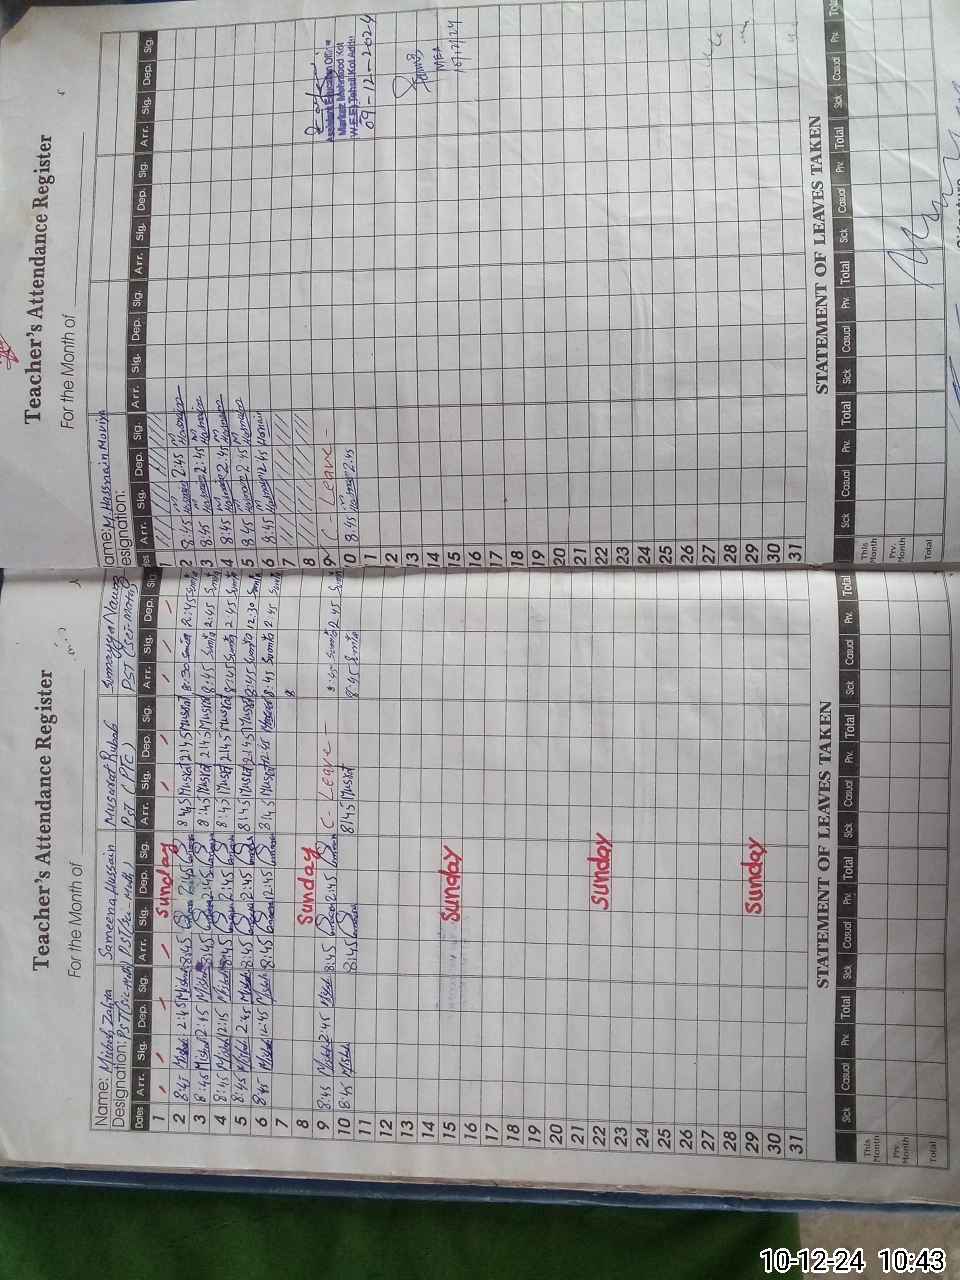 Teacher's Attendance Register
For the Month of
Name: Misbah Zahra Sameena Hussain Musarat Rubab Sumayya Nawaz
Designation: PST (Sci-Math) PST (Sci-Math) PST (PTC) PST (Sci-Math)
Dates Arr. Sig. Dep. Sig. Arr. Sig. Dep. Sig. Arr. Sig. Dep. Sig. Arr. Sig. Dep. Sig.
1 Sunday
2 8:45 Misbah 2:45 Misbah 8:45 2:45 8:45 Musrat 2:45 Musrat 8:30 Sumia 2:45 Sumia
3 8:45 Misbah 2:45 Misbah 8:45 2:45 8:45 Musrat 2:45 Musrat 8:45 Sumia 2:45 Sumia
4 8:45 Misbah 2:45 Misbah 8:45 2:45 8:45 Musrat 2:45 Musrat 8:45 Sumia 2:45 Sumia
5 8:45 Misbah 2:45 Misbah 8:45 2:45 8:45 Musrat 2:45 Musrat 8:45 Sumia 12:30 Sumia
6 8:45 Misbah 12:45 Misbah 8:45 12:45 8:45 Musrat 12:45 Musrat 8:45 Sumia 2:45 Sumia
7
8 Sunday
9 8:45 Misbah 2:45 Misbah 8:45 2:45 C- Leave - 8:45 Sumia 2:45 Sumia
10 8:45 Misbah 8:45 8:45 Musrat 8:45 Sumia
11
12
13
14
15 Sunday
16
17
18
19
20
21
22 Sunday
23
24
25
26
27
28
29 Sunday
30
31
STATEMENT OF LEAVES TAKEN
Sick Casual Prv. Total Sick Casual Prv. Total Sick Casual Prv. Total Sick Casual Prv. Total
This Month
Prv. Month
Total
Teacher's Attendance Register
For the Month of
ame: M. Hassnain Moviya
esignation:
es Arr. Sig. Dep. Sig. Arr. Sig. Dep. Sig. Arr. Sig. Dep. Sig. Arr. Sig. Dep. Sig.
1
2 8:45 Hasnain 2:45 Hasnain
3 8:45 Hasnain 2:45 Hasnain
4 8:45 Hasnain 2:45 Hasnain
5 8:45 Hasnain 2:45 Hasnain
6 8:45 Hasnain 12:45 Hasnain
7
8
9 C - Leave -
10 8:45 Hasnain 2:45
1
12
13
14
15
16
17
18
19
20
21
22
23
24
25
26
27
28
29
30
31
Assistant Education Officer
Markaz Mehmood Kot
W.E.E) Tehsil Kot Addu
09-12-2024
MEA
10/12/24
STATEMENT OF LEAVES TAKEN
Sick Casual Prv. Total Sick Casual Prv. Total Sick Casual Prv. Total Sick Casual Prv. Tot
This Month
Prv. Month
Total
10-12-24 10:43